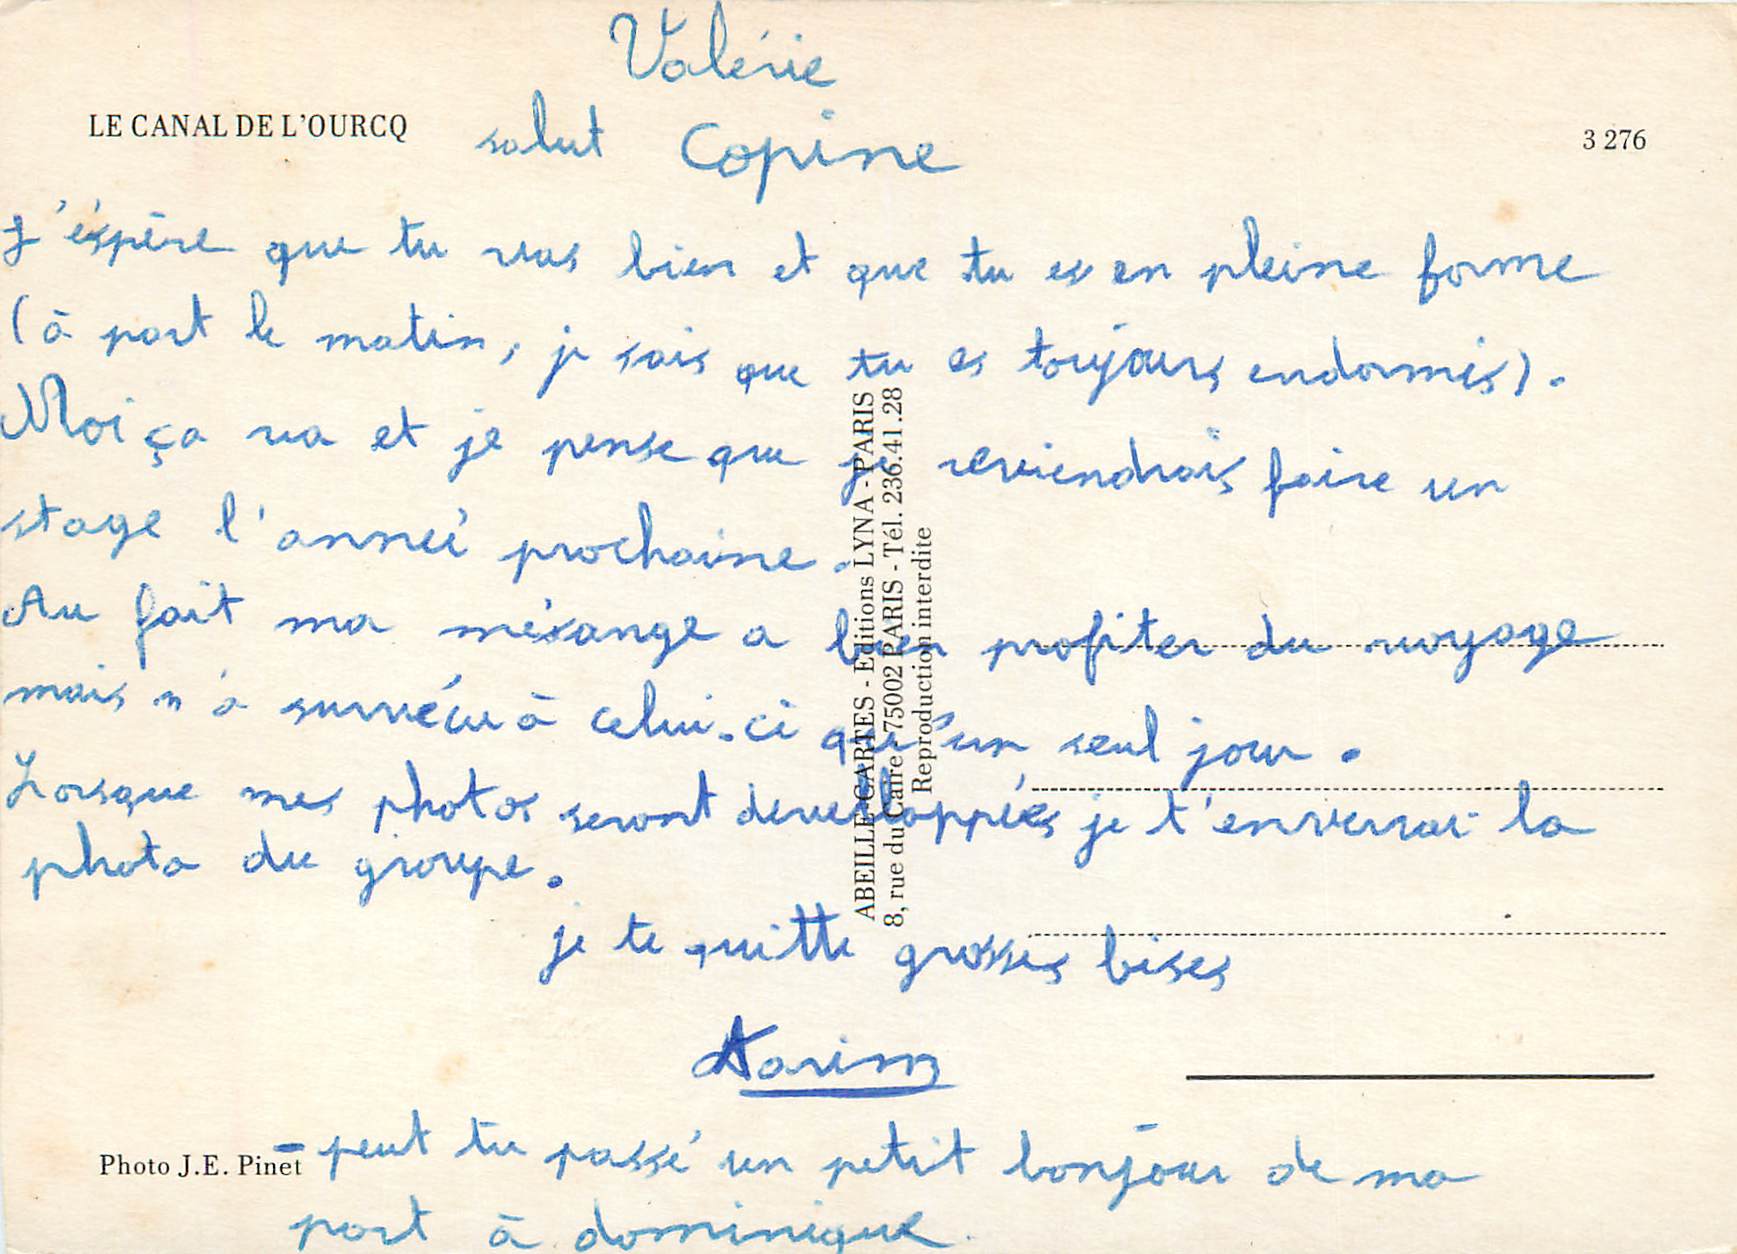 Valérie
LE CANAL DE L'OURCQ
salut Copine
3 276
J'éspère que tu vas bien et que tu es en pleine forme
(à part le matin, je sais que tu es toujours endormis).
Moi ça va et je pense que je reviendrais faire un
stage l'anneé prochaine.
Au fait ma mésange a bien profiter du voyage
mais n'à survécu à celui-ci qu'un seul jour.
Lorsque mes photos seront develloppées je t'enverrai la
photo du groupe.
je te quitte grosses bises
ABEILLE-CARTES - Editions LYNA - PARIS
8, rue du Caire - 75002 PARIS - Tél. 236.41.28
Reproduction interdite
Photo J.E. Pinet
- peut tu passé un petit bonjour de ma
part à dominique.